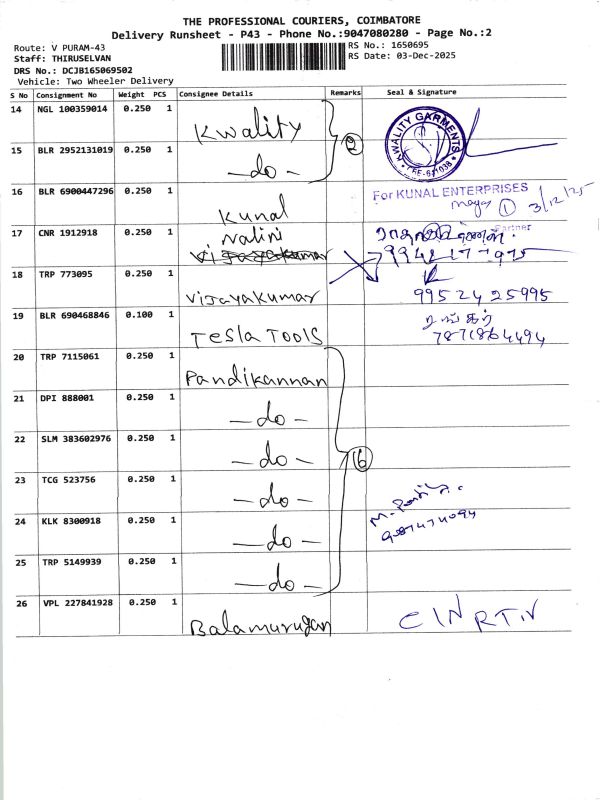 THE PROFESSIONAL COURIERS, COIMBATORE
Delivery Runsheet - P43 - Phone No.:9047080280 - Page No.:2
Route: V PURAM-43
Staff: THIRUSELVAN
DRS No.: DCJB165069502
Vehicle: Two Wheeler Delivery
RS No.: 1650695
RS Date: 03-Dec-2025
S No Consignment No Weight PCS Consignee Details Remarks Seal & Signature
14 NGL 100359014 0.250 1 Kwality
15 BLR 2952131019 0.250 1 -do- 2
KWALITY GARMENTS
16 BLR 6900447296 0.250 1 Kunal
For KUNAL ENTERPRISES
1 3/12/25
Partner
17 CNR 1912918 0.250 1 Nalini
Vijayakumar
18 TRP 773095 0.250 1 Vijayakumar
99524 25995
19 BLR 690468846 0.100 1 Tesla Tools
7871864494
20 TRP 7115061 0.250 1 Pandikannan
21 DPI 888001 0.250 1 -do-
22 SLM 383602976 0.250 1 -do- 6
23 TCG 523756 0.250 1 -do-
24 KLK 8300918 0.250 1 -do-
25 TRP 5149939 0.250 1 -do-
26 VPL 227841928 0.250 1 Balamurugan